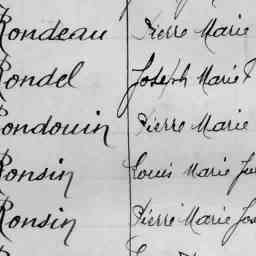 Rondeau Pierre Marie
Rondel Joseph Marie
Rondouin Pierre Marie
Ronsin Louis Marie
Ronsin Pierre Marie Jos